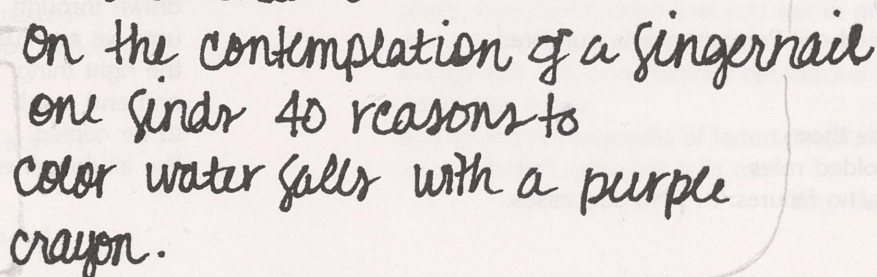 On the contemplation of a fingernail
one finds 40 reasons to
color water falls with a purple
crayon.